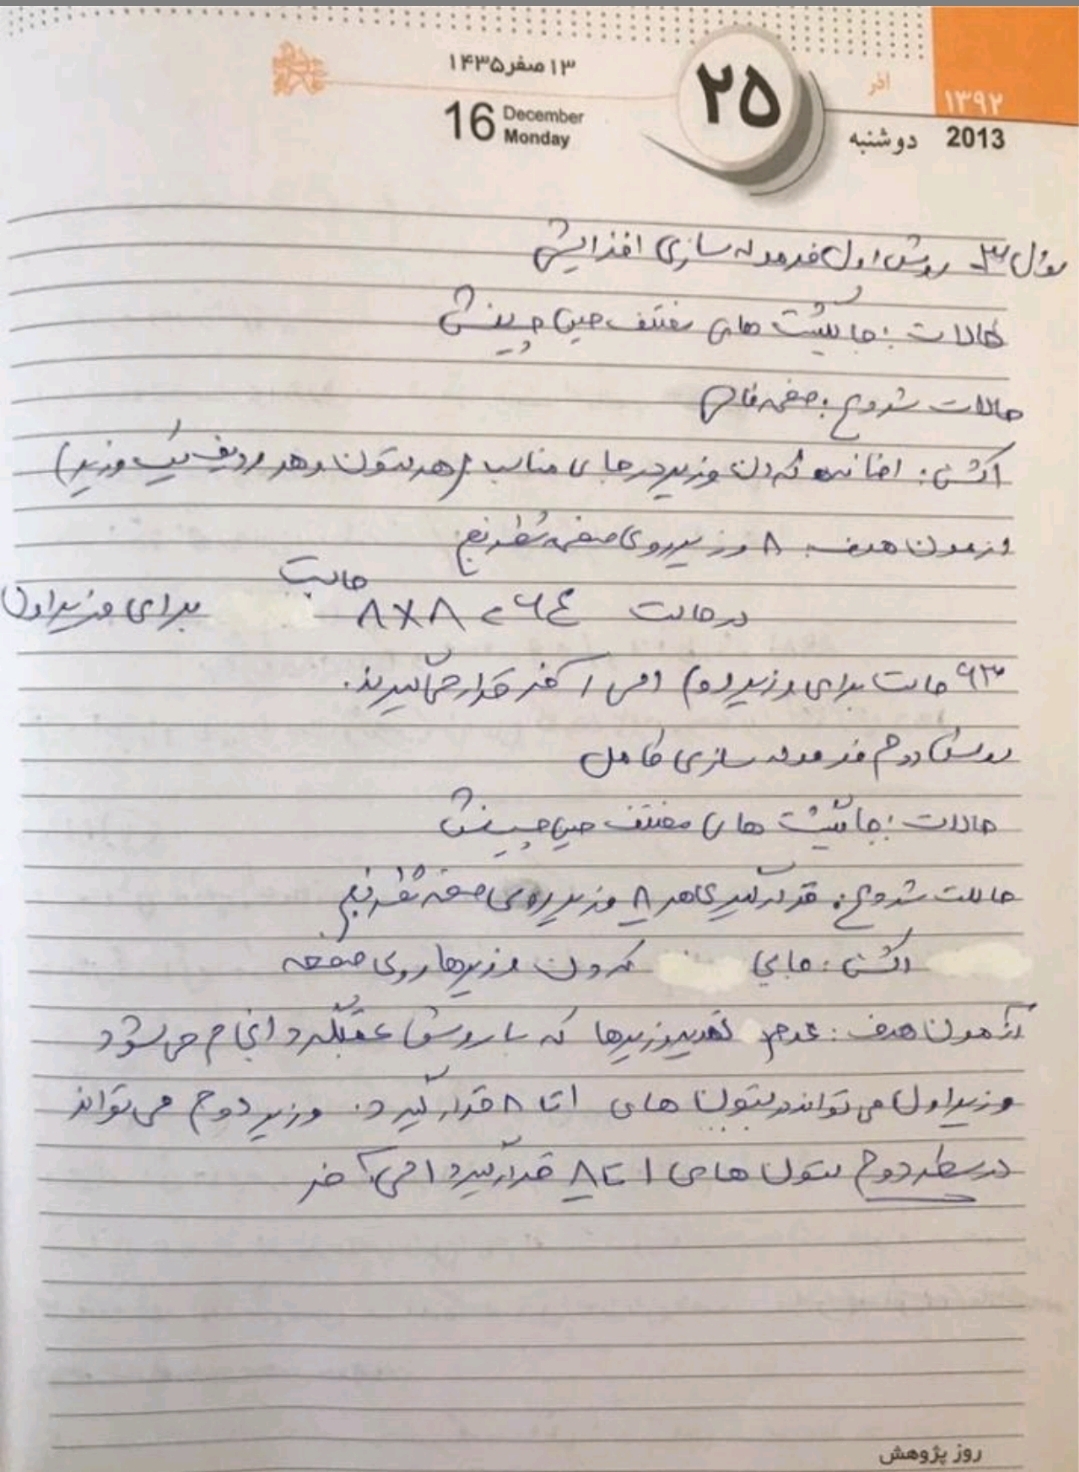 ۱۳۹۲
آذر
۲۵
۱۳ صفر ۱۴۳۵
2013 دوشنبه
16 December Monday
سؤال ۳- روش اول فرموله سازی افزایشی
حالات: جایگشت های مختلف چینش
حالات شروع: صفحه خالی
اکشن: اضافه کردن وزیر در جای مناسب (هر ستون و هر ردیف یک وزیر)
آزمون هدف: ۸ وزیر روی صفحه شطرنج
در حالت ۶۴ = ۸×۸ حالت برای وزیر اول
۶۳ حالت برای وزیر دوم الی آخر قرار می‌گیرند.
روش دوم فرموله سازی کامل
حالات: جایگشت های مختلف چینش
حالات شروع: قرارگیری هر ۸ وزیر روی صفحه شطرنج
اکشن: جابجا کردن وزیرها روی صفحه
آزمون هدف: عدم تهدید وزیرها که با روش عقبگرد انجام می‌شود
وزیر اول می تواند در ستون های ۱ تا ۸ قرار گیرد. وزیر دوم می تواند
در سطر دوم ستون های ۱ تا ۸ قرار گیرد الی آخر
روز پژوهش